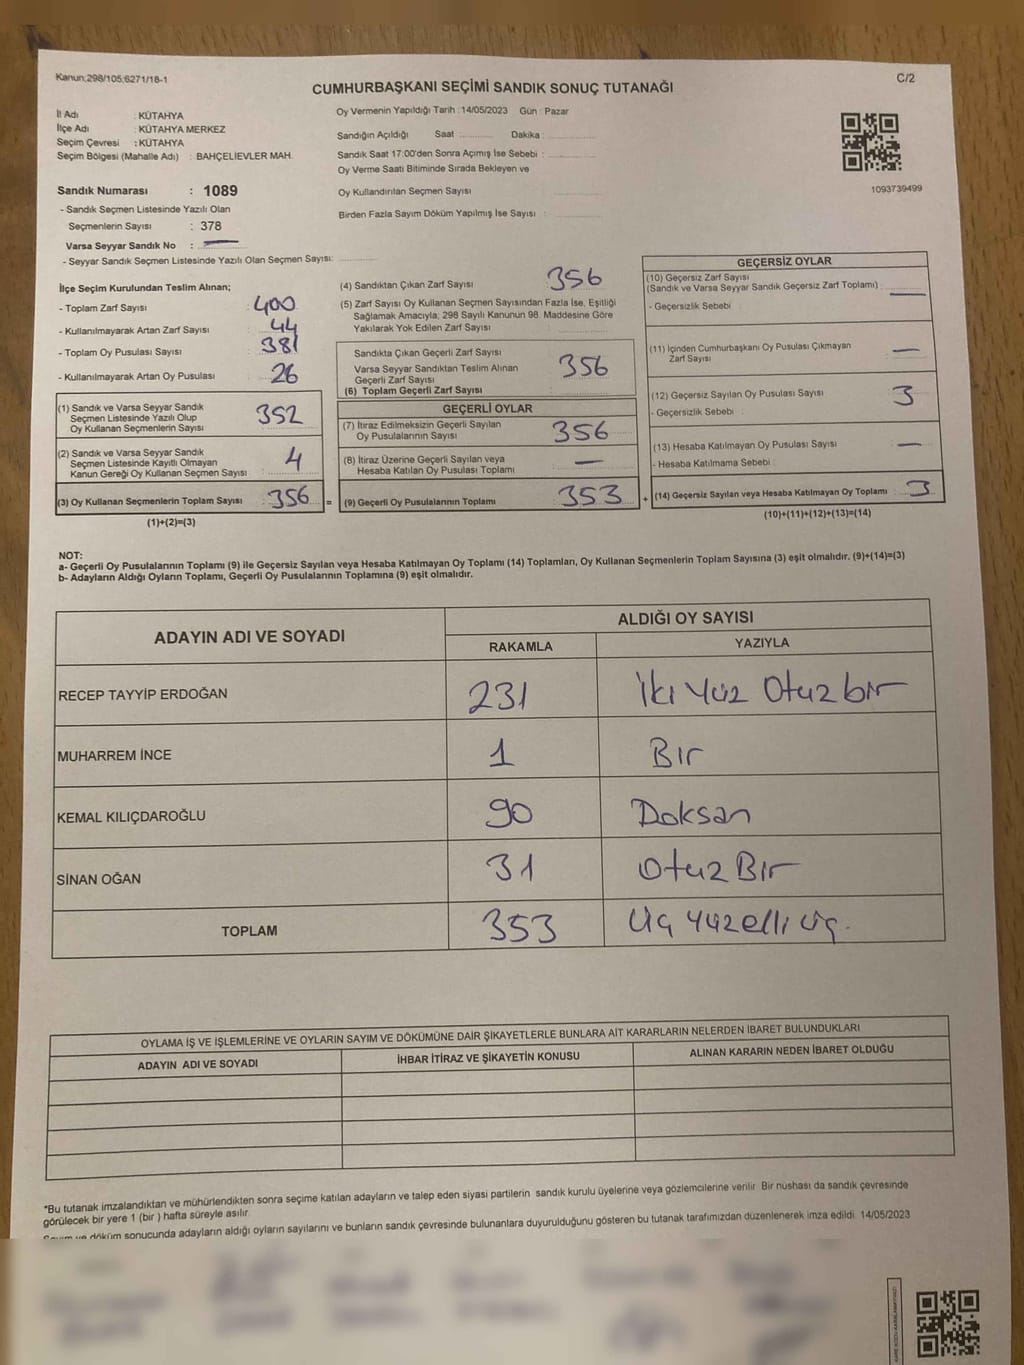 Kanun:298/105;6271/18-1
C/2
CUMHURBAŞKANI SEÇİMİ SANDIK SONUÇ TUTANAĞI
İl Adı : KÜTAHYA
İlçe Adı : KÜTAHYA MERKEZ
Seçim Çevresi : KÜTAHYA
Seçim Bölgesi (Mahalle Adı) : BAHÇELİEVLER MAH.
Sandık Numarası : 1089
- Sandık Seçmen Listesinde Yazılı Olan
Seçmenlerin Sayısı : 378
Varsa Seyyar Sandık No : —
- Seyyar Sandık Seçmen Listesinde Yazılı Olan Seçmen Sayısı:
Oy Vermenin Yapıldığı Tarih : 14/05/2023 Gün : Pazar
Sandığın Açıldığı Saat Dakika :
Sandık Saat 17:00'den Sonra Açımış İse Sebebi :
Oy Verme Saati Bitiminde Sırada Bekleyen ve
Oy Kullandırılan Seçmen Sayısı
Birden Fazla Sayım Döküm Yapılmış İse Sayısı :
1093739499
İlçe Seçim Kurulundan Teslim Alınan;
- Toplam Zarf Sayısı : 400
- Kullanılmayarak Artan Zarf Sayısı : 44
- Toplam Oy Pusulası Sayısı : 381
- Kullanılmayarak Artan Oy Pusulası : 26
(1) Sandık ve Varsa Seyyar Sandık
Seçmen Listesinde Yazılı Olup
Oy Kullanan Seçmenlerin Sayısı 352
(2) Sandık ve Varsa Seyyar Sandık
Seçmen Listesinde Kayıtlı Olmayan
Kanun Gereği Oy Kullanan Seçmen Sayısı 4
(3) Oy Kullanan Seçmenlerin Toplam Sayısı 356 =
(1)+(2)=(3)
(4) Sandıktan Çıkan Zarf Sayısı 356
(5) Zarf Sayısı Oy Kullanan Seçmen Sayısından Fazla İse, Eşitliği
Sağlamak Amacıyla; 298 Sayılı Kanunun 98. Maddesine Göre
Yakılarak Yok Edilen Zarf Sayısı
Sandıkta Çıkan Geçerli Zarf Sayısı
Varsa Seyyar Sandıktan Teslim Alınan
Geçerli Zarf Sayısı
(6) Toplam Geçerli Zarf Sayısı 356
GEÇERLİ OYLAR
(7) İtiraz Edilmeksizin Geçerli Sayılan
Oy Pusulalarının Sayısı 356
(8) İtiraz Üzerine Geçerli Sayılan veya
Hesaba Katılan Oy Pusulası Toplamı —
(9) Geçerli Oy Pusulalarının Toplamı 353 +
GEÇERSİZ OYLAR
(10) Geçersiz Zarf Sayısı
(Sandık ve Varsa Seyyar Sandık Geçersiz Zarf Toplamı) —
- Geçersizlik Sebebi :
(11) İçinden Cumhurbaşkanı Oy Pusulası Çıkmayan
Zarf Sayısı —
(12) Geçersiz Sayılan Oy Pusulası Sayısı 3
- Geçersizlik Sebebi :
(13) Hesaba Katılmayan Oy Pusulası Sayısı —
- Hesaba Katılmama Sebebi :
(14) Geçersiz Sayılan veya Hesaba Katılmayan Oy Toplamı 3
(10)+(11)+(12)+(13)=(14)
NOT:
a- Geçerli Oy Pusulalarının Toplamı (9) ile Geçersiz Sayılan veya Hesaba Katılmayan Oy Toplamı (14) Toplamları, Oy Kullanan Seçmenlerin Toplam Sayısına (3) eşit olmalıdır. (9)+(14)=(3)
b- Adayların Aldığı Oyların Toplamı, Geçerli Oy Pusulalarının Toplamına (9) eşit olmalıdır.
ADAYIN ADI VE SOYADI
ALDIĞI OY SAYISI
RAKAMLA YAZIYLA
RECEP TAYYİP ERDOĞAN 231 İki Yüz Otuz bir
MUHARREM İNCE 1 Bir
KEMAL KILIÇDAROĞLU 90 Doksan
SİNAN OĞAN 31 Otuz Bir
TOPLAM 353 Üç yüzelli üç.
OYLAMA İŞ VE İŞLEMLERİNE VE OYLARIN SAYIM VE DÖKÜMÜNE DAİR ŞİKAYETLERLE BUNLARA AİT KARARLARIN NELERDEN İBARET BULUNDUKLARI
ADAYIN ADI VE SOYADI İHBAR İTİRAZ VE ŞİKAYETİN KONUSU ALINAN KARARIN NEDEN İBARET OLDUĞU
*Bu tutanak imzalandıktan ve mühürlendikten sonra seçime katılan adayların ve talep eden siyasi partilerin sandık kurulu üyelerine veya gözlemcilerine verilir. Bir nüshası da sandık çevresinde
görülecek bir yere 1 (bir ) hafta süreyle asılır.
Sayım ve döküm sonucunda adayların aldığı oyların sayılarını ve bunların sandık çevresinde bulunanlara duyurulduğunu gösteren bu tutanak tarafımızdan düzenlenerek imza edildi. 14/05/2023